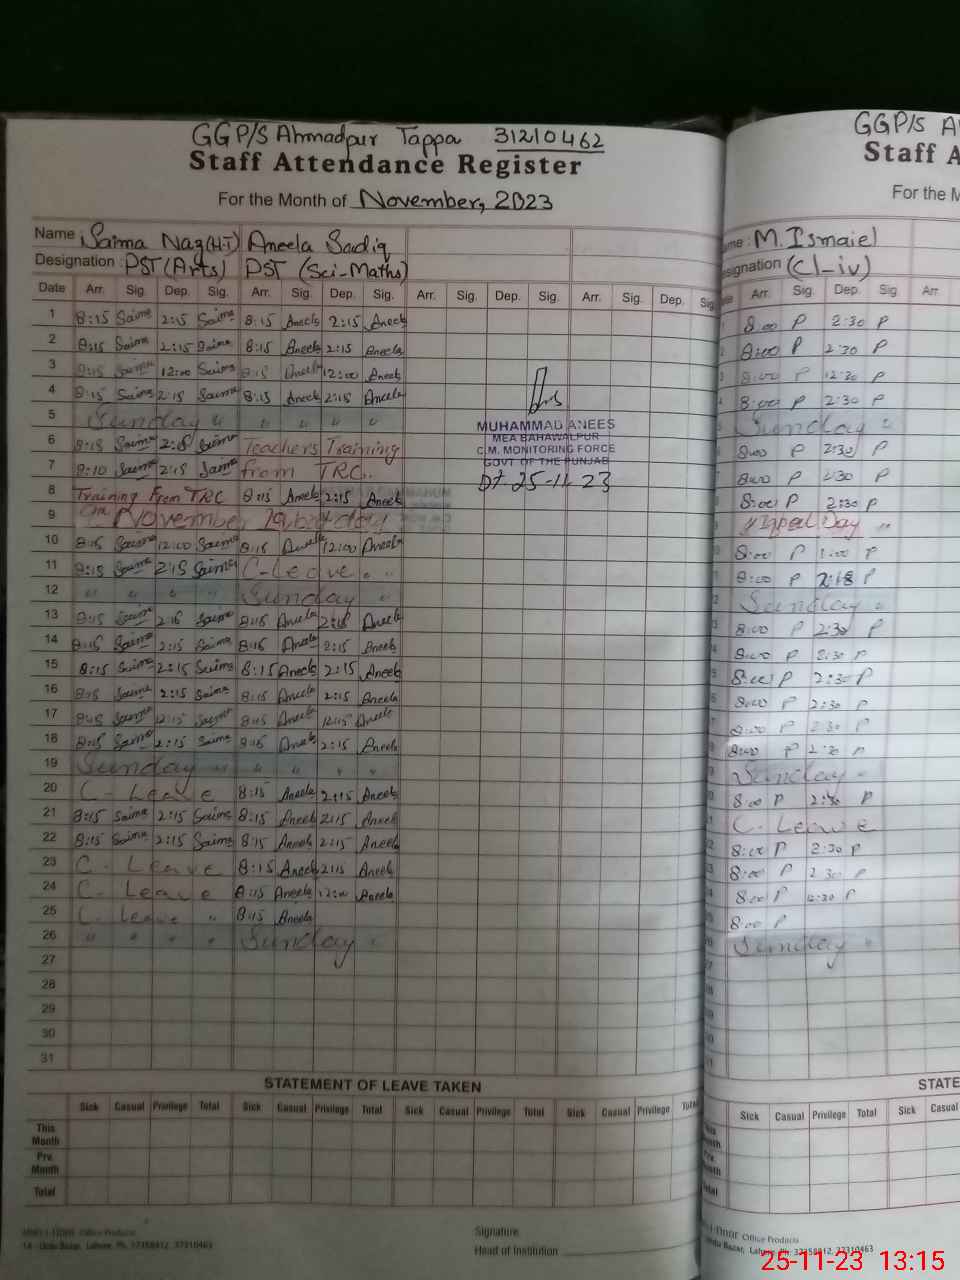 GGP/S Ahmadpur Tappa 31210462
Staff Attendance Register
For the Month of November, 2023
Name Saima Naz (H-T) Aneela Sadiq
Designation : PST (Arts) PST (Sci-Maths)
Date Arr. Sig. Dep. Sig. Arr. Sig. Dep. Sig. Arr. Sig. Dep. Sig. Arr. Sig. Dep. Sig.
1 8:15 Saima 2:15 Saima 8:15 Aneela 2:15 Aneela
2 8:15 Saima 2:15 Saima 8:15 Aneela 2:15 Aneela
3 8:15 Saima 12:00 Saima 8:15 Aneela 12:00 Aneela
4 8:15 Saima 2:15 Saima 8:15 Aneela 2:15 Aneela
5 Sunday " " " " "
6 8:15 Saima Saima Teachers Training
7 8:10 Saima 2:15 Saima from TRC..
8 Training From TRC 8:15 Aneela 2:15 Aneela
9 November Iqbal day
10 8:15 Saima 12:00 Saima 8:15 Aneela 12:00 Aneela
11 8:15 Saima 2:15 Saima C-Leave " "
12 " " " " Sunday "
13 8:15 Saima Saima 8:15 Aneela Aneela
14 8:15 Saima 2:15 Saima 8:15 Aneela 2:15 Aneela
15 8:15 Saima 2:15 Saima 8:15 Aneela 2:15 Aneela
16 8:15 Saima 2:15 Saima 8:15 Aneela 2:15 Aneela
17 8:15 Saima 12:15 Saima 8:15 Aneela 12:15 Aneela
18 8:15 Saima 2:15 Saima 8:15 Aneela 2:15 Aneela
19 Sunday " " " " "
20 C-Leave 8:15 Aneela 2:15 Aneela
21 8:15 Saima 2:15 Saima 8:15 Aneela 2:15 Aneela
22 8:15 Saima 2:15 Saima 8:15 Aneela 2:15 Aneela
23 C-Leave 8:15 Aneela 2:15 Aneela
24 C-Leave 8:15 Aneela 12:00 Aneela
25 C-Leave " 8:15 Aneela
26 " " " " Sunday "
27
28
29
30
31
MUHAMMAD ANEES
MEA BAHAWALPUR
C.M. MONITORING FORCE
GOVT OF THE PUNJAB
Dt. 25-11-23
STATEMENT OF LEAVE TAKEN
Sick Casual Privilege Total Sick Casual Privilege Total Sick Casual Privilege Total Sick Casual Privilege Total
This Month
Prv. Month
Total
Office Products
14 - Urdu Bazar, Lahore. Ph: 37358812, 37310463
Signature
Head of Institution
GGP/S A
Staff A
For the M
me : M. Ismaiel
signation (Cl-iv)
Arr. Sig. Dep. Sig. Arr
8:00 P 2:30 P
8:00 P 2:30 P
8:00 P 12:30 P
8:00 P 2:30 P
Sunday "
8:00 P 2:30 P
8:00 P 2:30 P
8:00 P 2:30 P
Iqbal Day "
8:00 P 1:00 P
8:00 P P
Sunday "
8:00 P 2:30 P
8:00 P 2:30 P
8:00 P 2:30 P
8:00 P 2:30 P
8:00 P 2:30 P
8:00 P 2:30 P
Sunday "
8:00 P 2:30 P
C-Leave
8:00 P 2:30 P
8:00 P 2:30 P
8:00 P 12:30 P
8:00 P
Sunday "
STATE
Sick Casual Privilege Total Sick Casual
This Month
Prv. Month
Total
Office Products
Urdu Bazar, Lahore. Ph: 37358812, 37310463
25-11-23 13:15